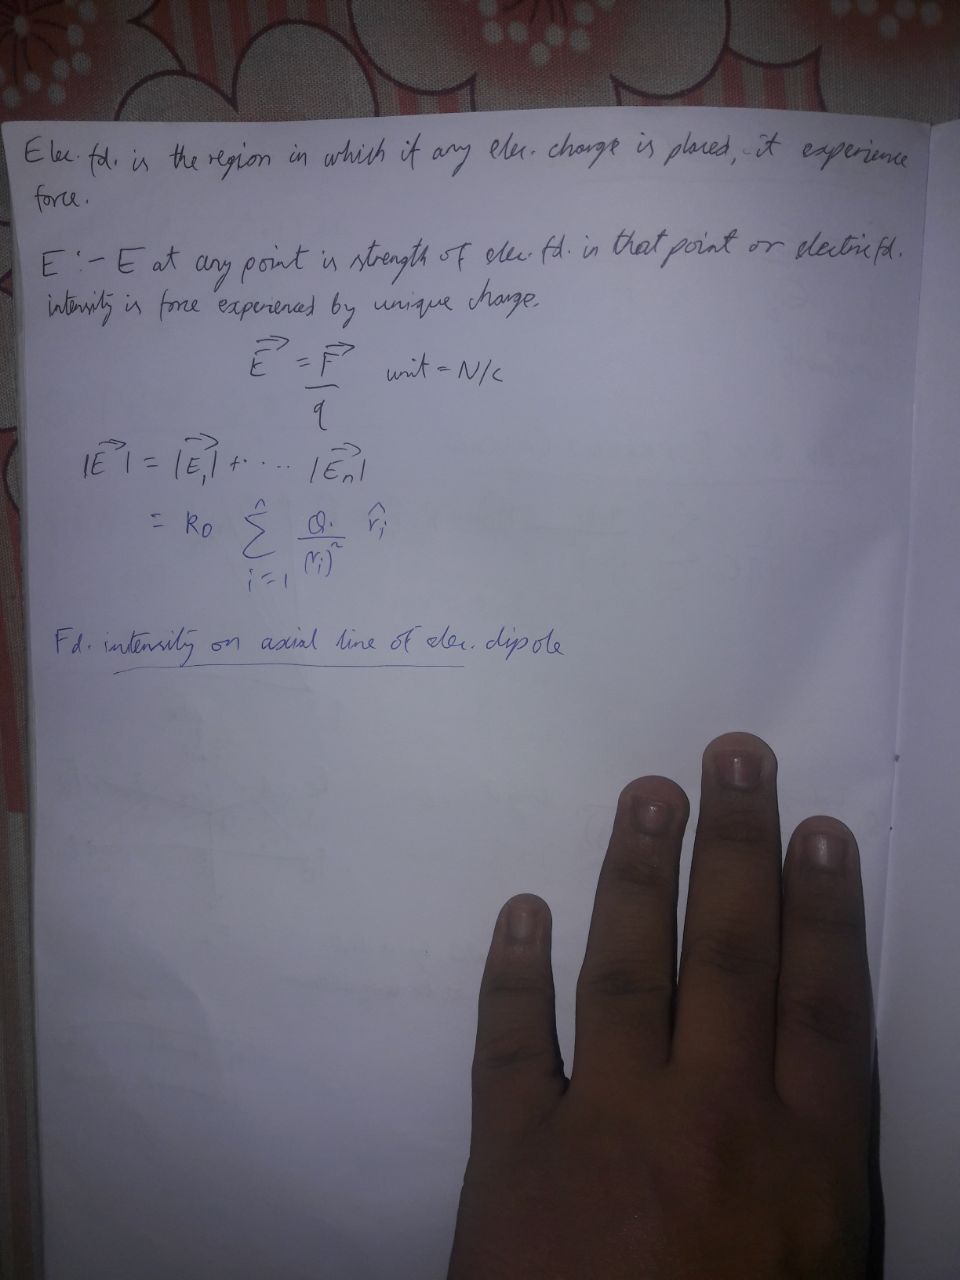 Elec. fd. is the region in which if any elec. charge is placed, it experience
force.
E :- E at any point is strength of elec. fd. in that point or electric fd.
intensity is force experienced by unique charge.
E⃗ = F⃗/q unit = N/C
|E⃗| = |E⃗₁| + .... |E⃗ₙ|
= K₀ ∑ⁿᵢ₌₁ Qᵢ/(rᵢ)² r̂ᵢ
Fd. intensity on axial line of elec. dipole